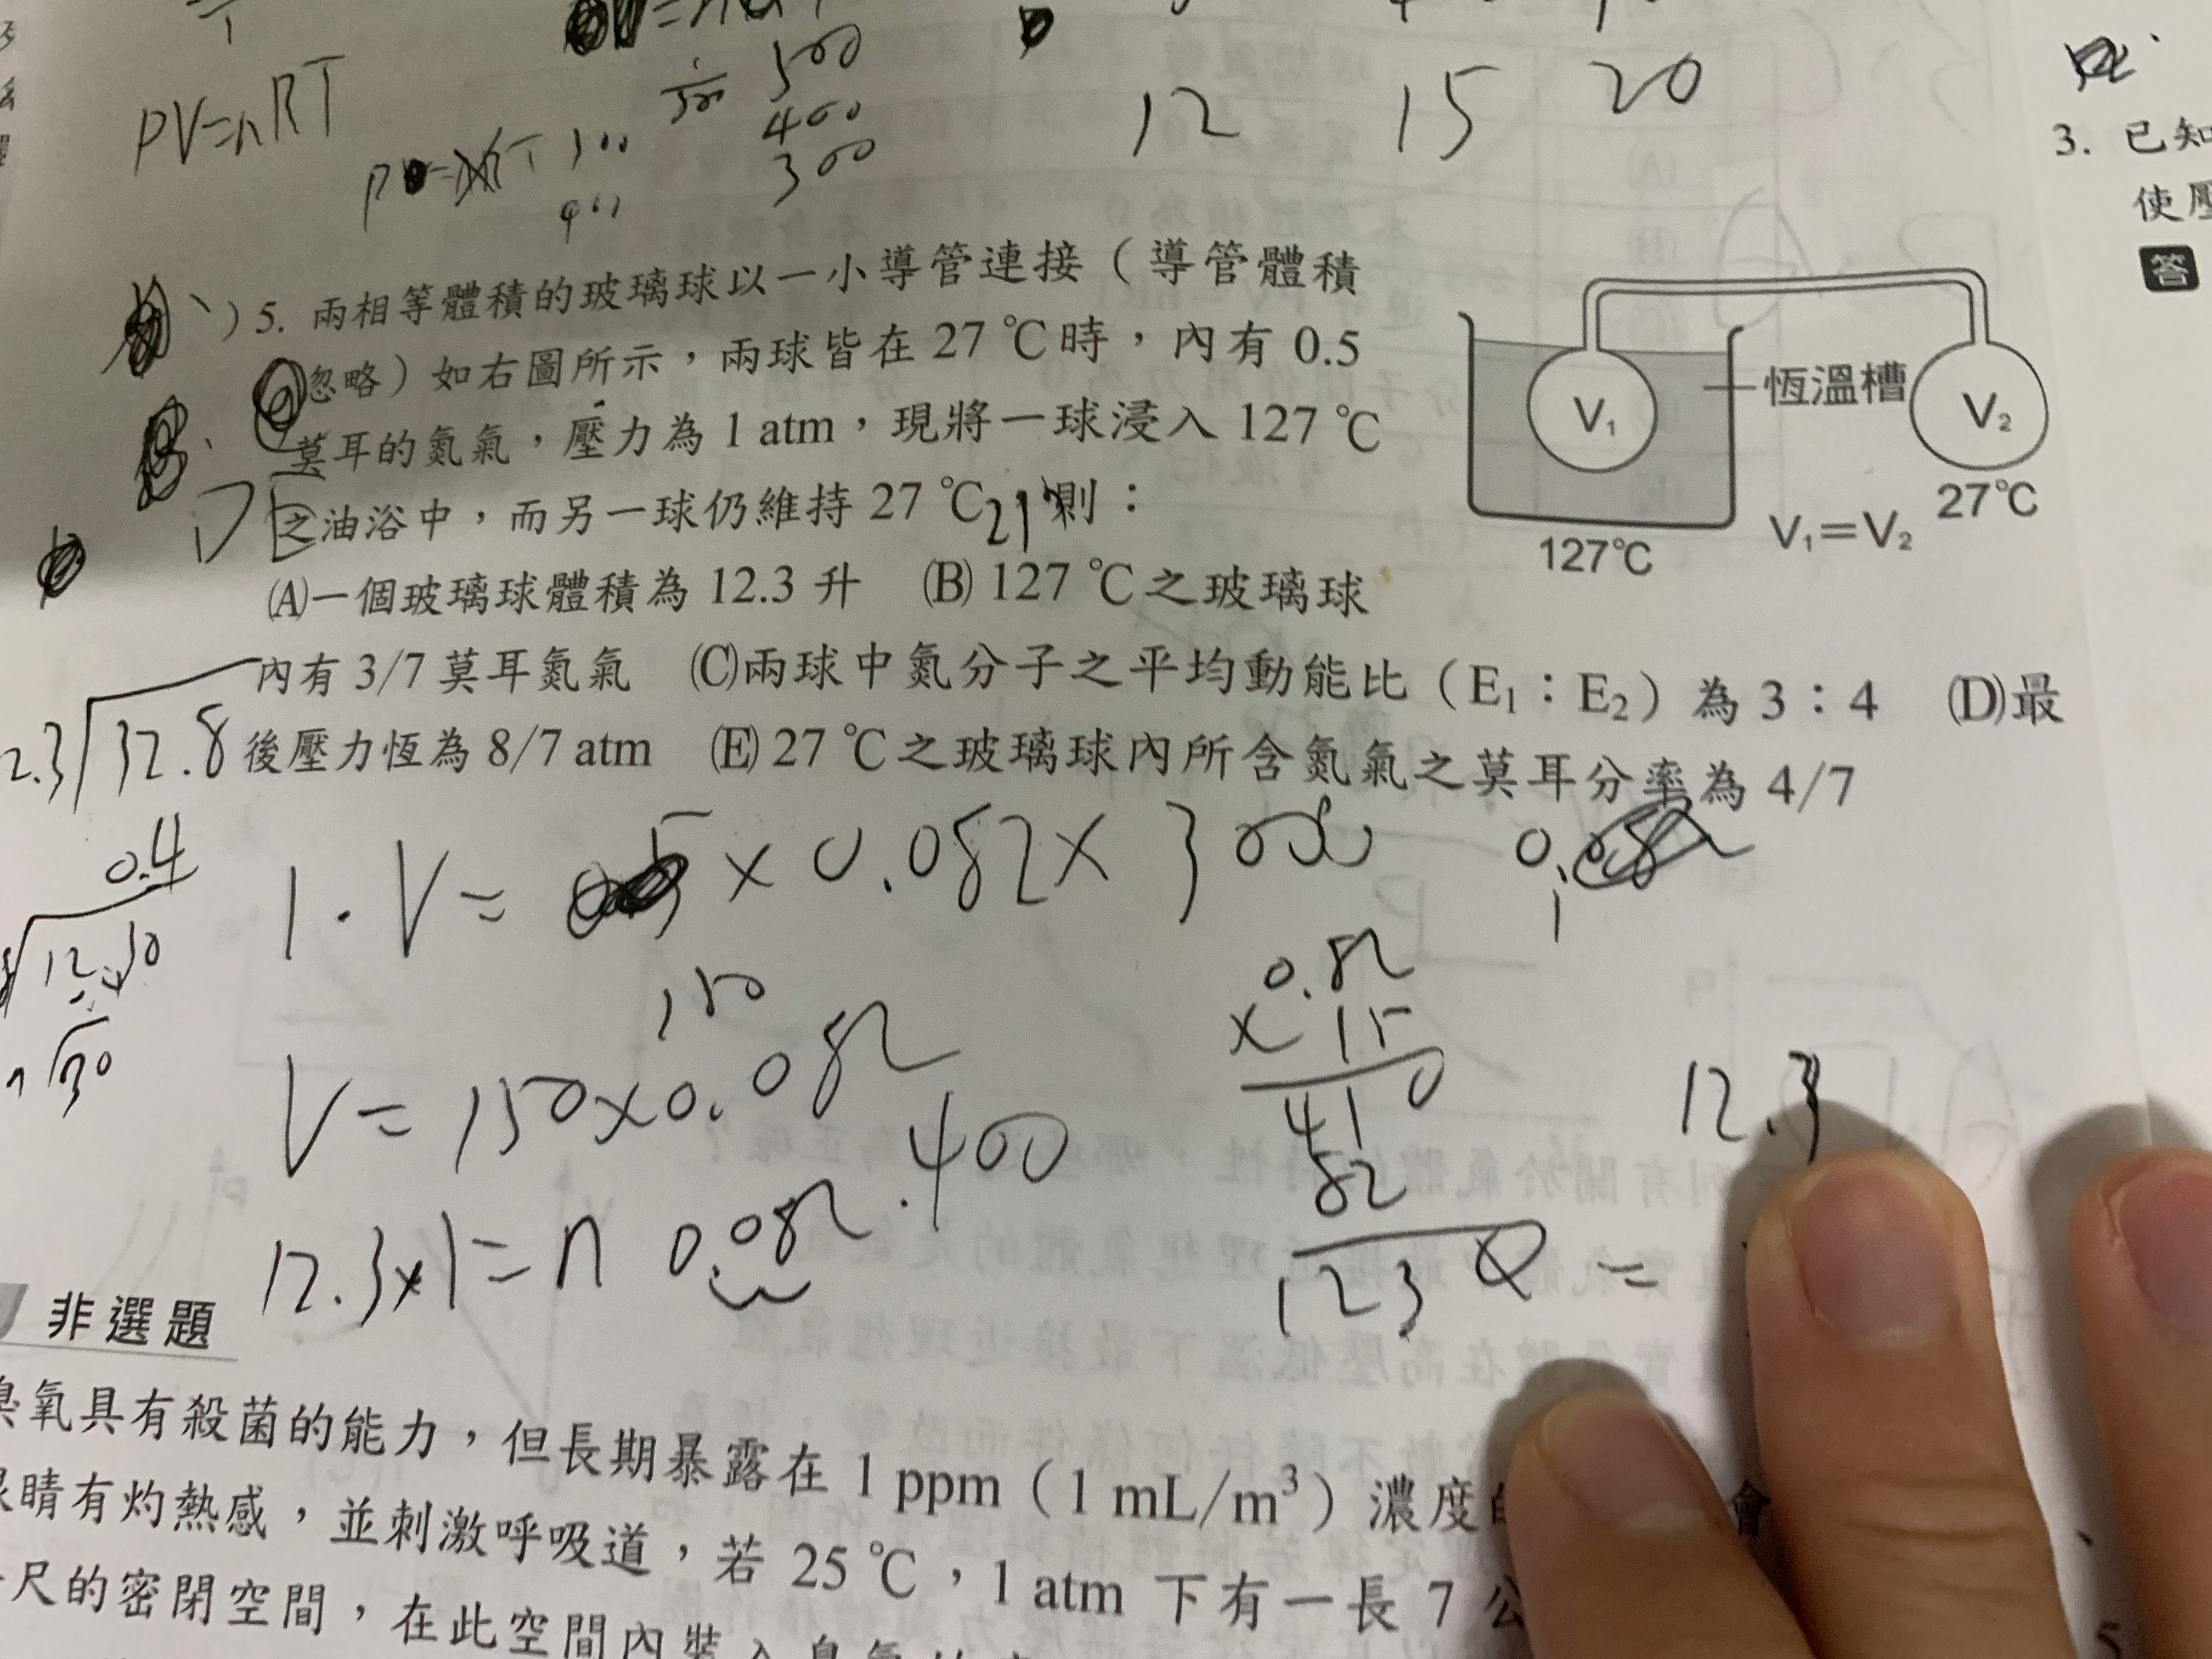 PV=nRT
500
400
300
12 15 20
3. 已知
使壓
答
5. 兩相等體積的玻璃球以一小導管連接（導管體積
忽略）如右圖所示，兩球皆在 27 ℃時，內有 0.5
莫耳的氮氣，壓力為 1 atm，現將一球浸入 127 ℃
之油浴中，而另一球仍維持 27 ℃，則：
V₁
恆溫槽
V₂
127℃
V₁=V₂
27℃
(A)一個玻璃球體積為 12.3 升 (B) 127 ℃之玻璃球
內有 3/7 莫耳氮氣 (C)兩球中氮分子之平均動能比（E₁：E₂）為 3：4 (D)最
後壓力恆為 8/7 atm (E) 27 ℃之玻璃球內所含氮氣之莫耳分率為 4/7
2.3 32.8
0.4
12.30
1·V= 5×0.082×300
150
V=150×0.082
0.82
×15
410
82
1230 =
12.3
12.3×1=n 0.082.400
非選題
臭氧具有殺菌的能力，但長期暴露在 1 ppm（1 mL/m³）濃度 會
眼睛有灼熱感，並刺激呼吸道，若 25 ℃，1 atm 下有一長 7 公
尺的密閉空間，在此空間內裝入臭氧
5